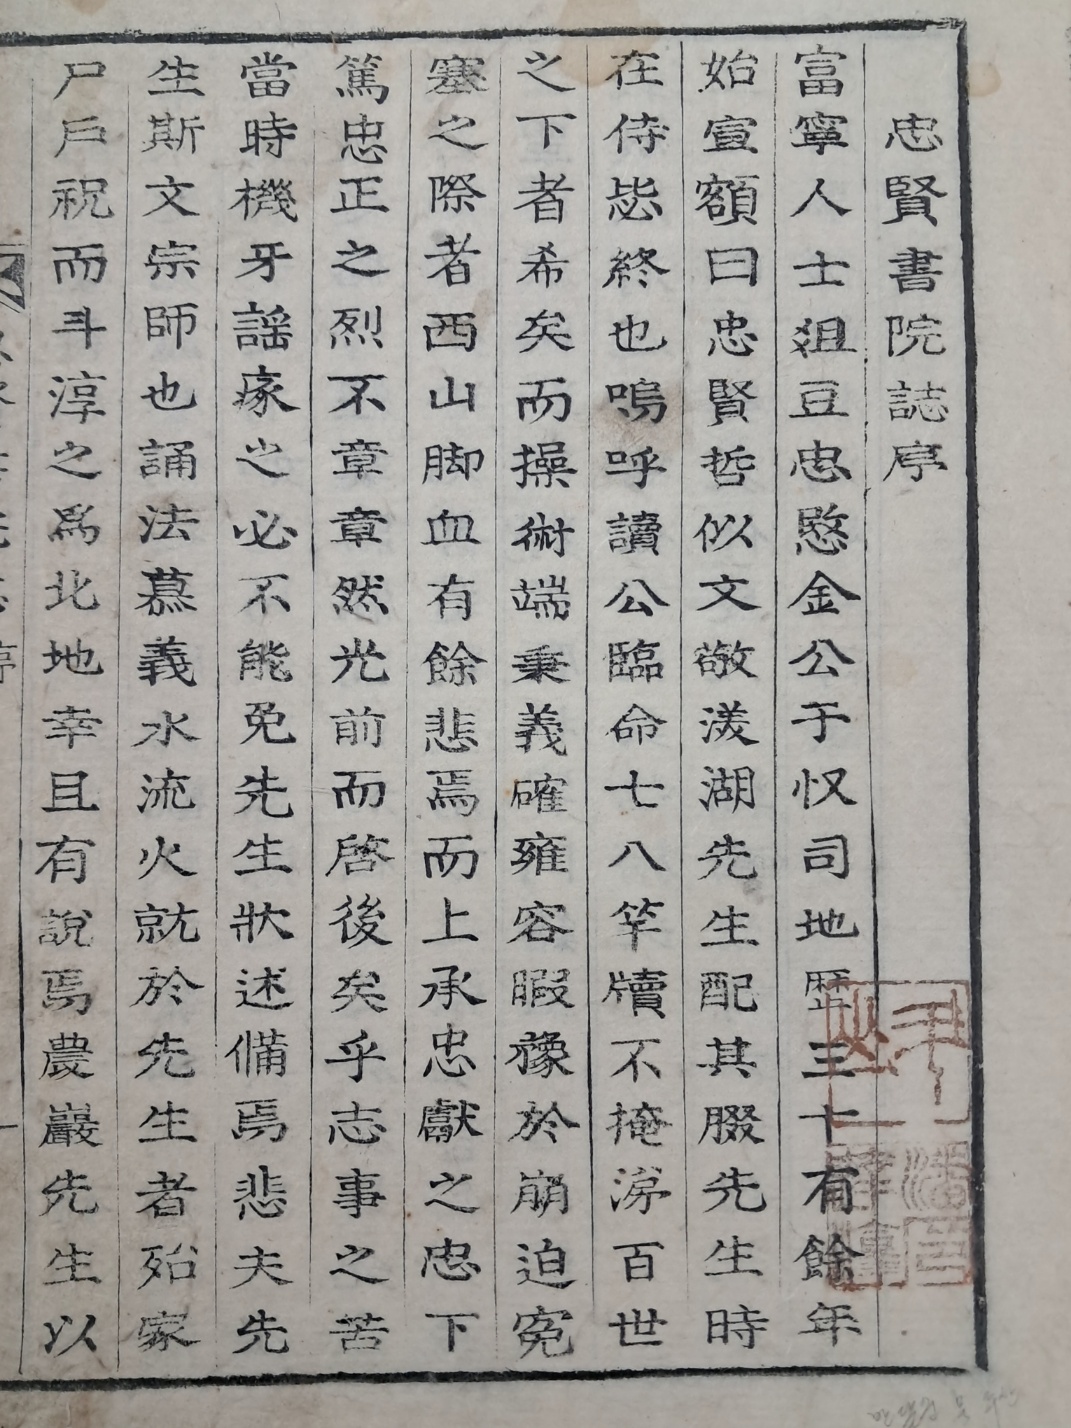 忠賢書院誌序
富寧人士爼豆忠愍金公于㕞司地歷三十有餘年
始宣額曰忠賢哲似文敬渼湖先生配其腏先生時
在侍毖終也嗚呼讀公臨命七八竿牘不掩涕百世
之下者希矣而操術端秉義確雍容暇豫於崩迫寃
塞之際者西山脚血有餘悲焉而上承忠獻之忠下
篤忠正之烈不章章然光前而啓後矣乎志事之苦
當時機牙謡諑之必不能免先生狀述備焉悲夫先
生斯文宗師也誦法慕義水流火就於先生者殆家
尸戶祝而斗淳之爲北地幸且有說焉農巖先生以